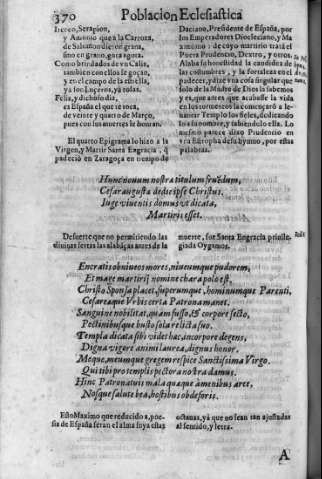 370 Poblacion Eclesiastica
Ireneo, Serapion,
y Antonio que a la Carroza,
de Salamon dieron grana,
sino en grano, gota a gota.
Como brindados de vn Caliz,
tambien con ellos se gozan,
y en el campo de la estrella,
ya son Luzeros, ya rosas.
Felix, y dichoso dia,
es España el que te toca,
de veinte y quatro de Março,
pues con los martires le honran.
El quarto Epigrama lo hizo a la
Virgen, y Martir Santa Engracia, q̃
padeciò en Zaragoça en tiempo de
Daciano, Presidente de España, por
los Emperadores Diocleciano, y Ma
ximino: de cuyo martirio trata el
Poeta Prudencio, Dextro, y otros.
Alaba su honestidad la candidez de
las costumbres, y la fortaleza en el
padecer, y dize vna cosa singular que
solo de la Madre de Dios la sabemos
y es, que antes que acabasse la vida
en los tormentos la començaron a le-
uantar Templo los fieles, dedicando
le a su nombre, y tabiendolo ella. Lo
mismo parece dixo Prudencio en
vna Europha de su hymno, por estas
palabras.
Hunc nouum nostra titulum fruēdum,
Cesar augusta dedit ipse Christus.
Iuge viuentis domus vt dicata,
Martiris esset.
De suerte que no permitiendo las
diuinas letras las alabaças antes de la
muerte, fue Santa Engracia priuile-
giada
Encratis ob niueos mores, niueumque pudorem,
Et magè martirij nomine chara polo est.
Christo Sponsa placet, superumque, hominumque Parenti,
Cesareaque Vrbis certa Patrona manet.
Sanguine nobilitat, quam fuso, & corpore secto,
Pectinibusque busto sola relicta suo.
Templa dicata sibi videt hac, incorpore degens,
Digna vigere animi laurea, dignus honor.
Meque, meumque gregem respice Sanctissima Virgo.
Qui tibi pro templis pictora nostra damus.
Hinc Patronatuis mala quaque à menibus arce,
Nosque salute bea, hostibus obde foris.
Esto Maximo que reducido a, poe-
sia de España seran el alma suya estas
octauas, ya que no sean tan ajustadas
al sentido, y letra.
A